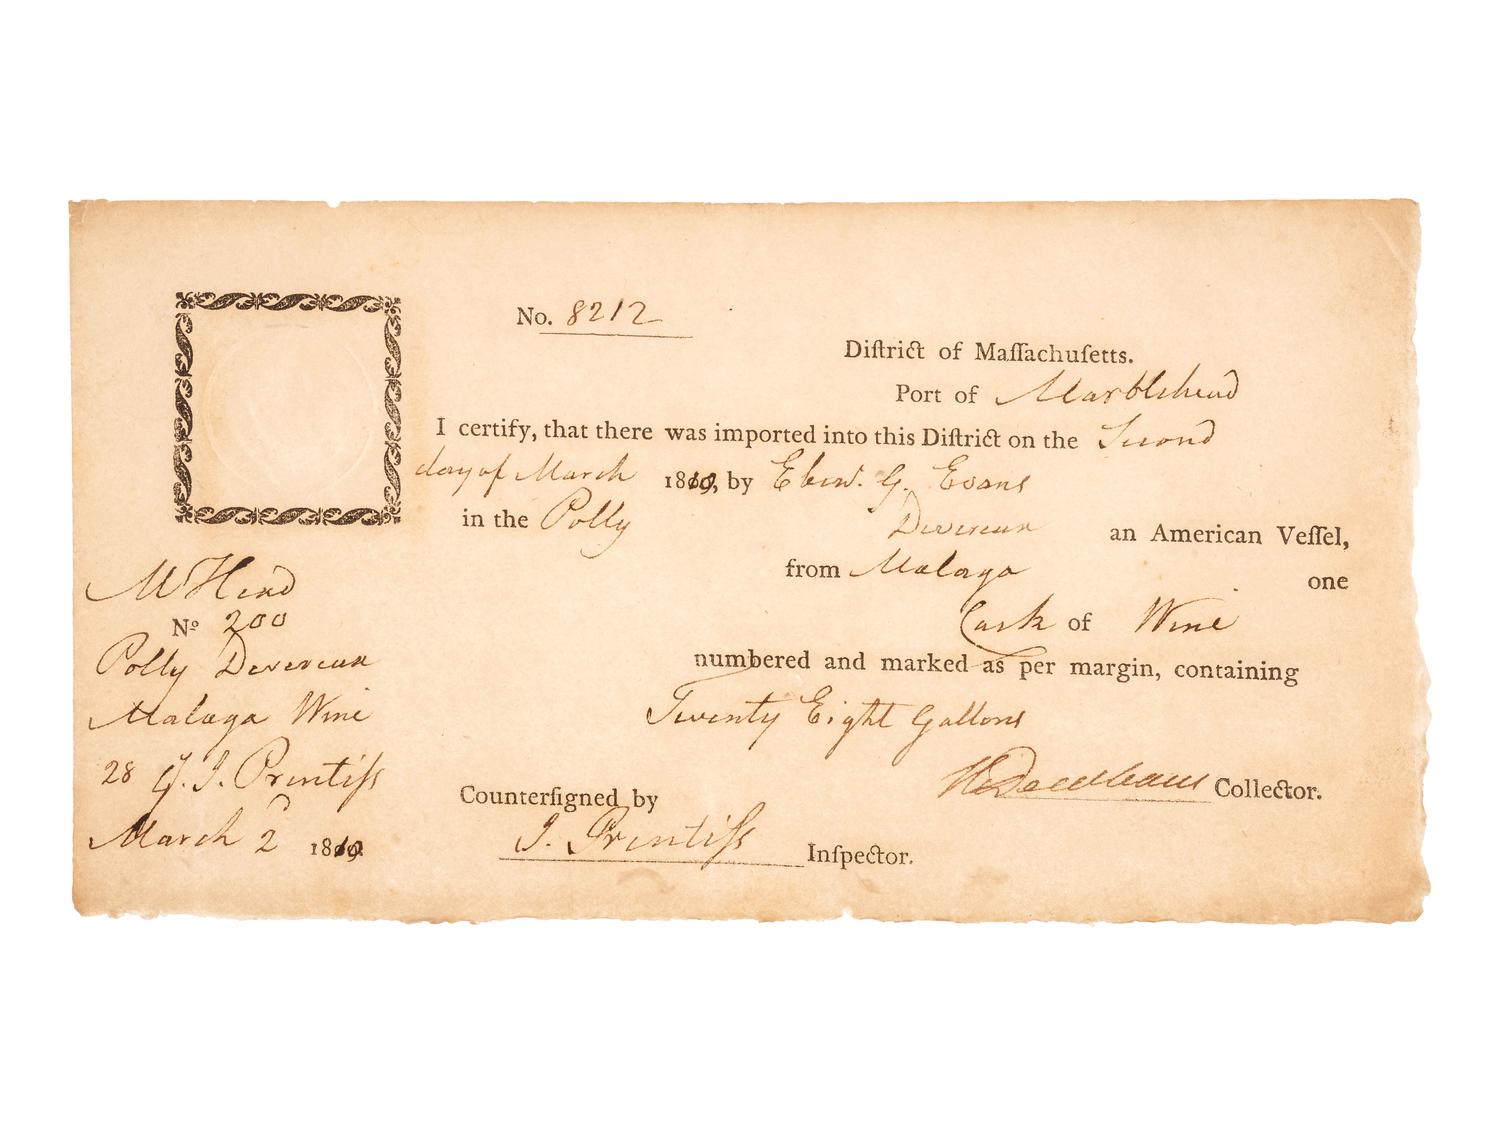 No. 8212
Diſtrict of Maſſachuſetts.
Port of Marblehead
I certify, that there was imported into this Diſtrict on the Second
day of March 1810, by Eben.r G. Evans
in the Polly Devereux an American Veſſel,
from Malaga one
Cask of Wine
numbered and marked as per margin, containing
Twenty Eight Gallons
Collector.
Counterſigned by
J. Prentiſs Inſpector.
MHead
No 200
Polly Devereux
Malaga Wine
28 G. J. Prentiſs
March 2d 1810